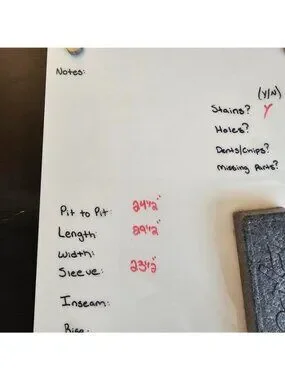 Notes:
(Y/N)
Stains? Y
Holes?
Dents/Chips?
Missing Parts?
Pit to Pit: 24½"
Length: 29½"
Width:
Sleeve: 23½"
Inseam:
Rise: